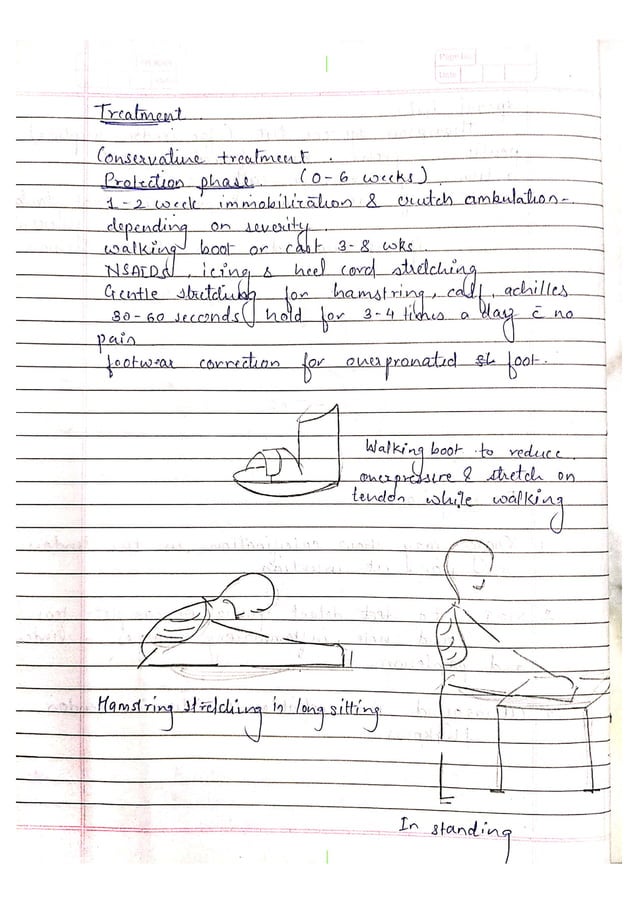 Page No.
Date
Treatment
Conservative treatment.
Protection phase. (0-6 weeks)
1-2 week immobilization & crutch ambulation-
depending on severity.
walking boot or cast 3-8 wks.
NSAIDs, icing & heel cord stretching
Gentle stretching for hamstring, calf, achilles
30-60 seconds hold for 3-4 times a day c̄ no
pain
footwear correction for overpronated foot.
Walking boot to reduce
overpressure & stretch on
tendon while walking
Hamstring stretching in long sitting
In standing